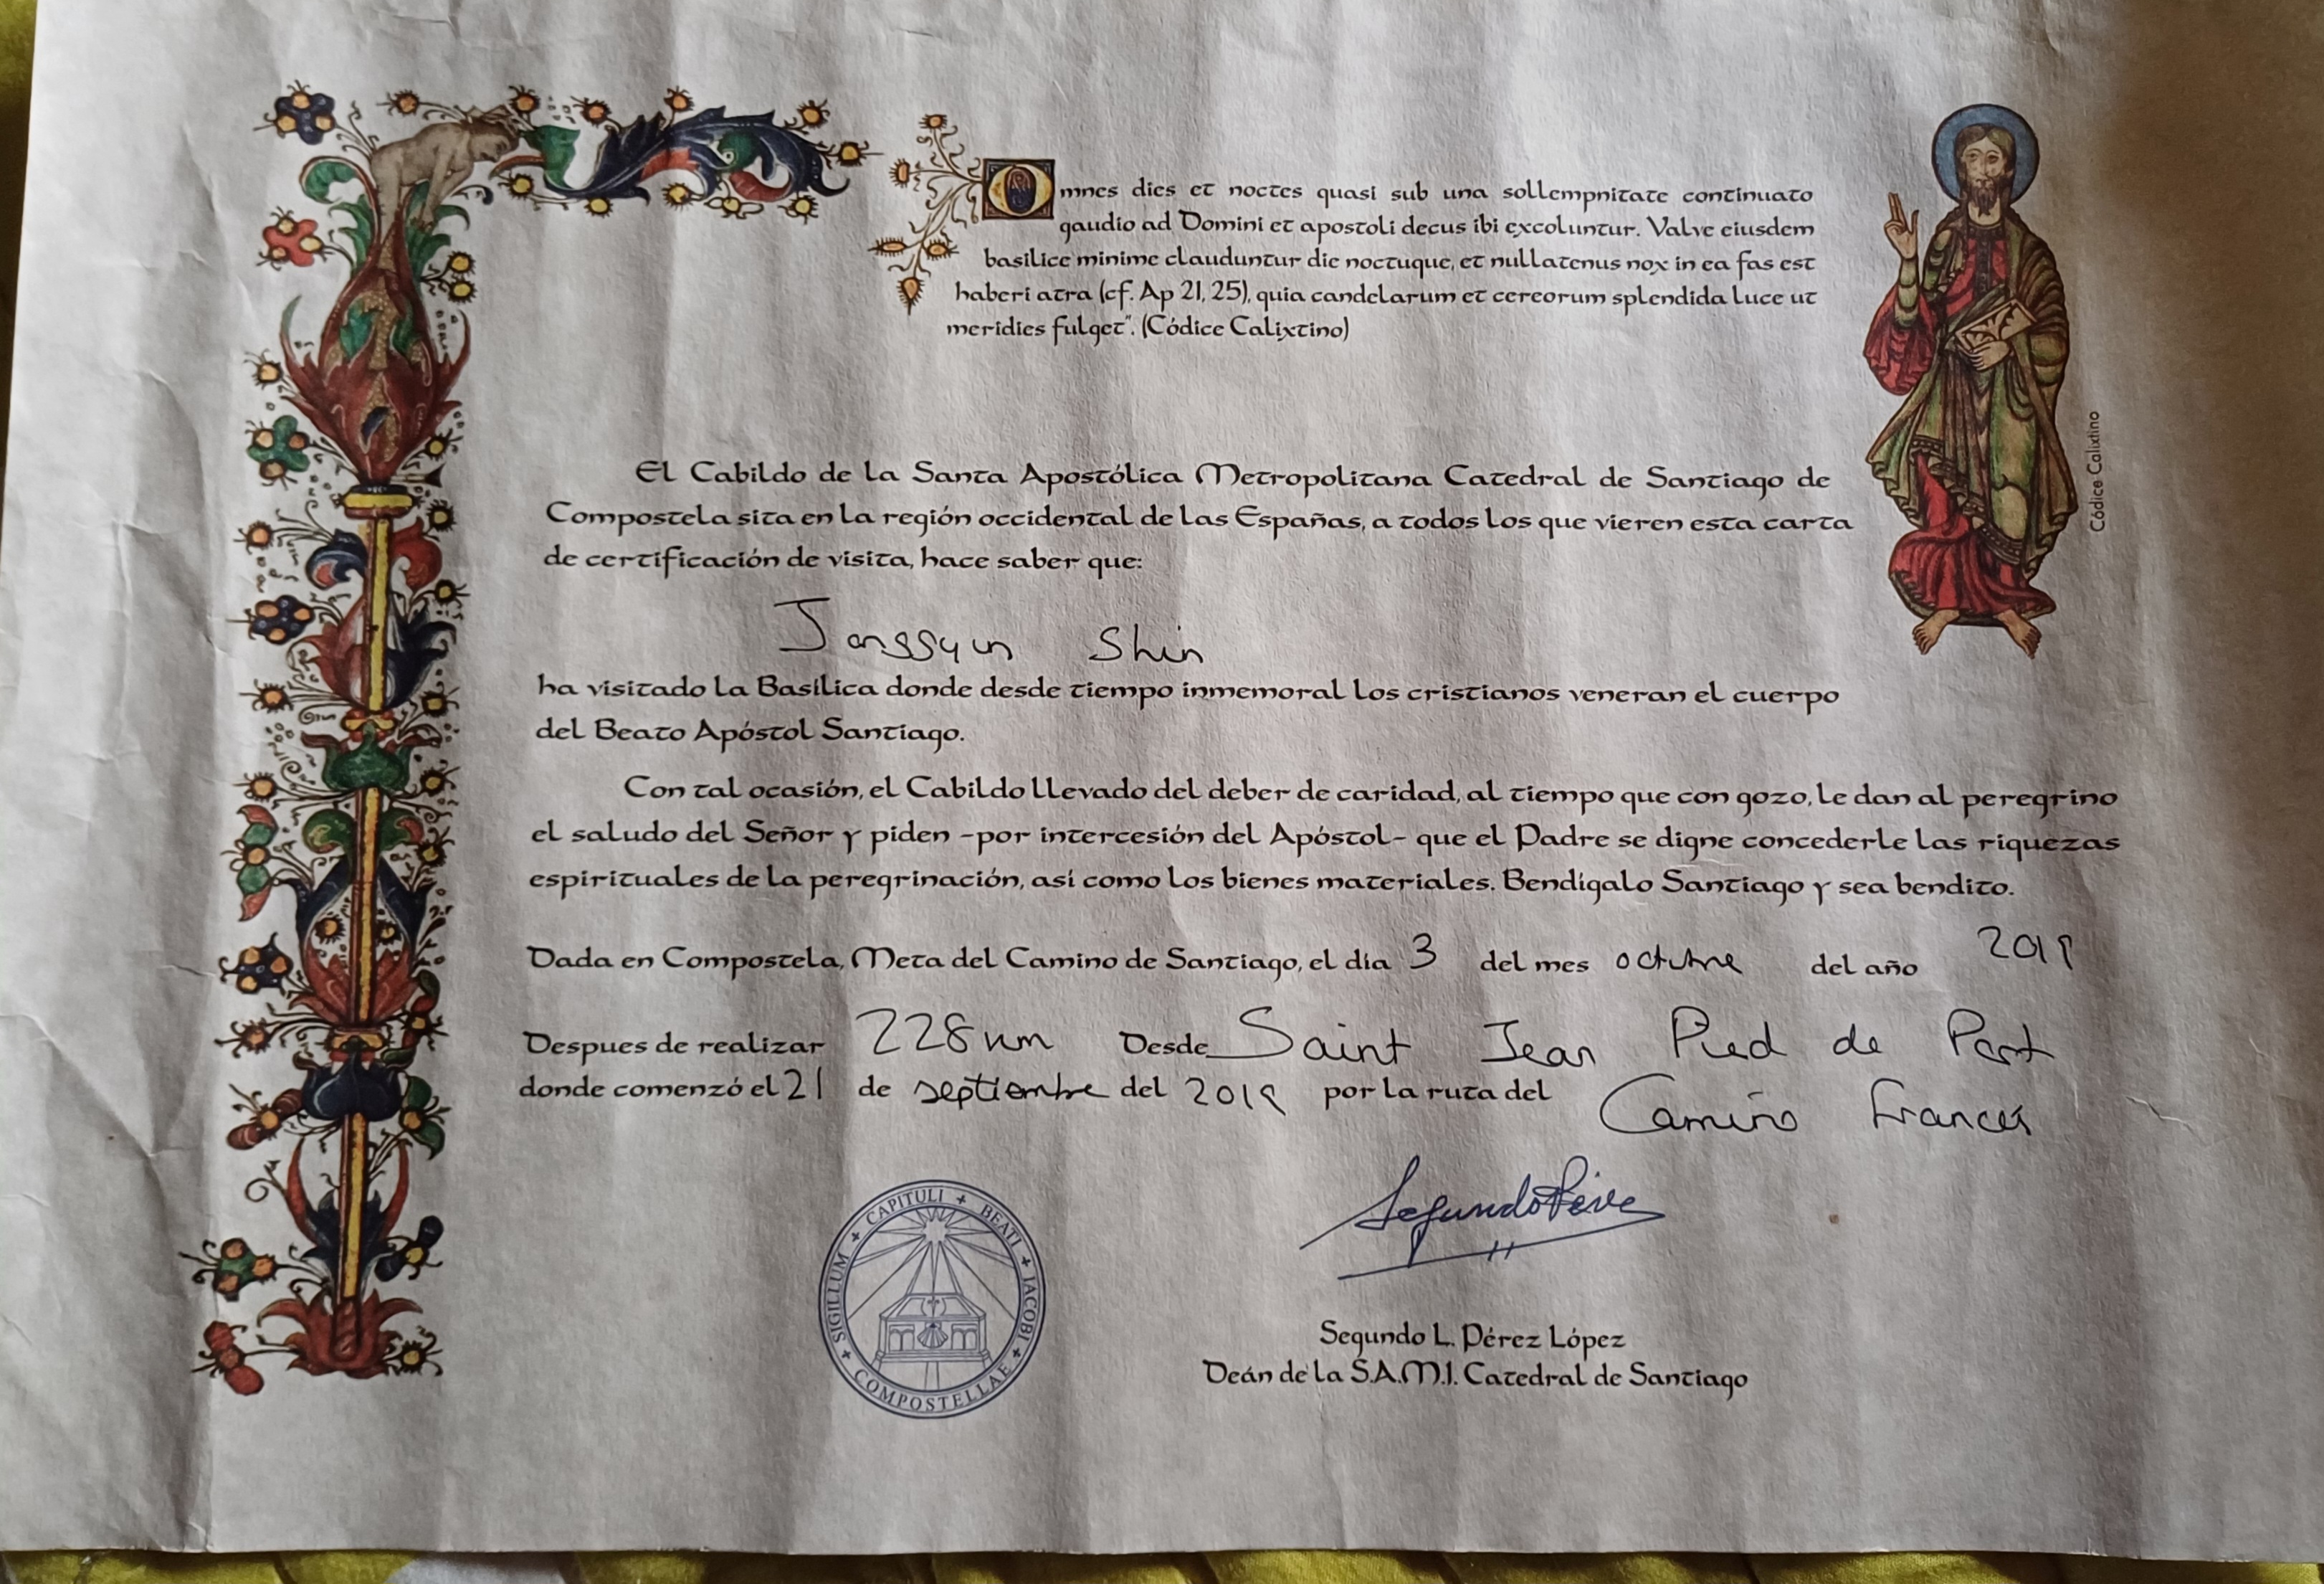 Omnes dies et noctes quasi sub una sollempnitate continuato
gaudio ad Domini et apostoli decus ibi excoluntur. Valve eiusdem
basilice minime clauduntur die noctuque, et nullatenus nox in ea fas est
haberi atra (cf. Ap 21, 25), quia candelarum et cereorum splendida luce ut
meridies fulget”. (Códice Calixtino)
Códice Calixtino
El Cabildo de la Santa Apostólica Metropolitana Catedral de Santiago de
Compostela sita en la región occidental de las Españas, a todos los que vieren esta carta
de certificación de visita, hace saber que:
Jongsyun Shin
ha visitado la Basílica donde desde tiempo inmemorial los cristianos veneran el cuerpo
del Beato Apóstol Santiago.
Con tal ocasión, el Cabildo llevado del deber de caridad, al tiempo que con gozo, le dan al peregrino
el saludo del Señor y piden -por intercesión del Apóstol- que el Padre se digne concederle las riquezas
espirituales de la peregrinación, así como los bienes materiales. Bendígalo Santiago y sea bendito.
Dada en Compostela, Meta del Camino de Santiago, el día 3 del mes octubre del año 2019
Despues de realizar 228 km Desde Saint Jean Pied de Port
donde comenzó el 21 de septiembre del 2019 por la ruta del Camino Francés
SIGILLUM + CAPITULI + BEATI + IACOBI + COMPOSTELLAE +
Segundo Pérez
Segundo L. Pérez López
Deán de la S.A.M.I. Catedral de Santiago